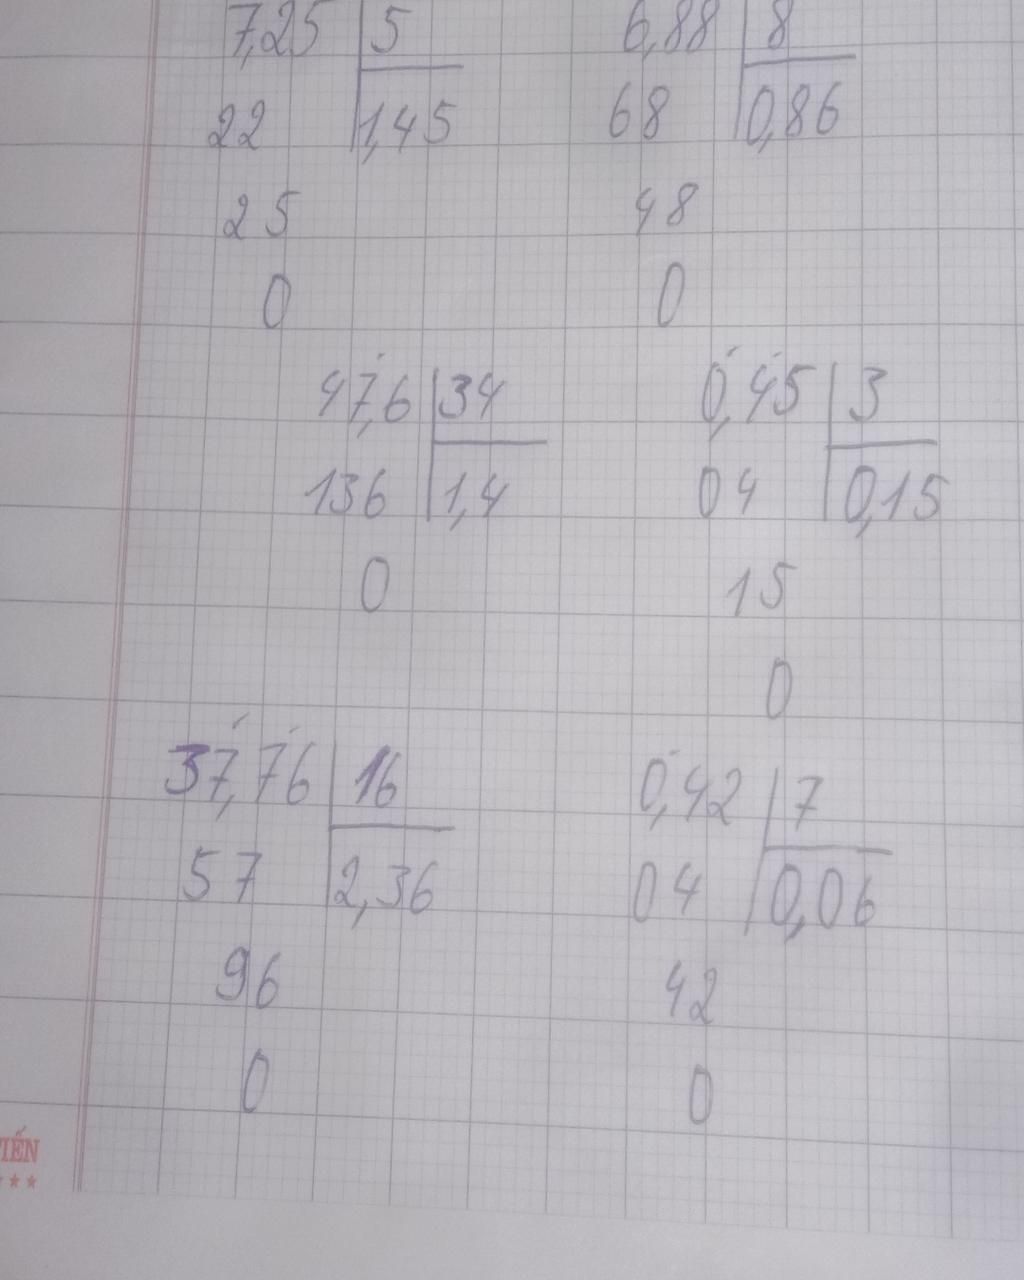 7,25 5 6,88 8
22 1,45 68 0,86
25 48
0 0
47,6 34 0,45 3
136 1,4 04 0,15
0 15
0
37,76 16 0,42 7
57 2,36 04 0,06
96 42
0 0
IẾN